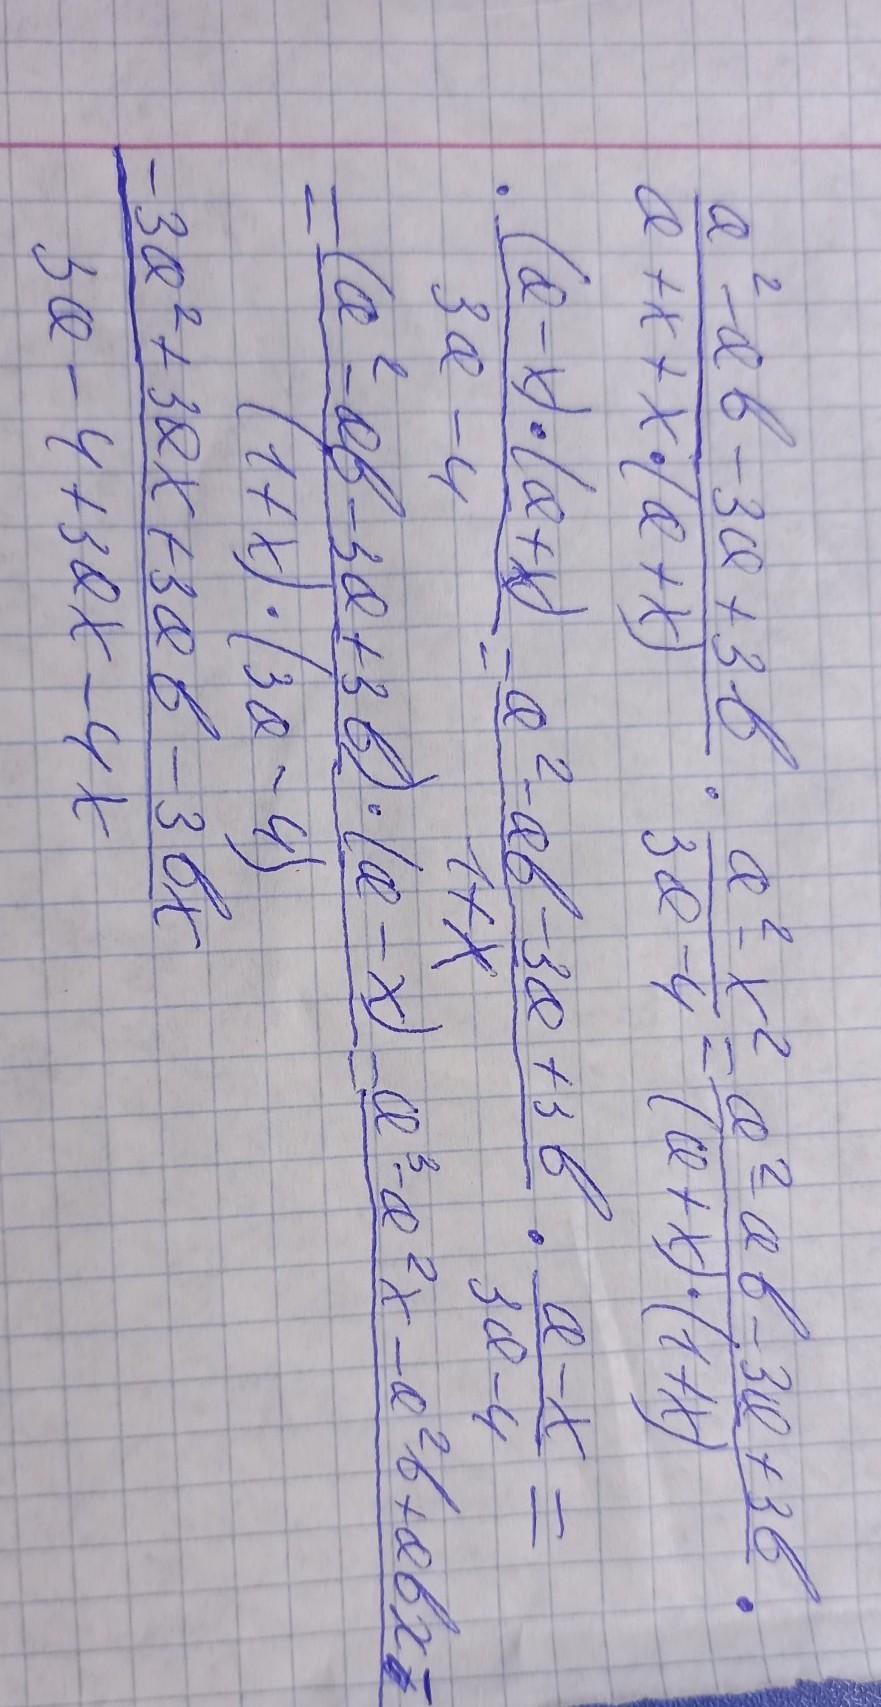 a² - ab - 3a + 3b / a + x + x·(a + x) · a² - x² / 3a - 4 = a² - ab - 3a + 3b / (a + x)·(1 + x) ·
· (a - x)·(a + x) / 3a - 4 = a² - ab - 3a + 3b / 1 + x · a - x / 3a - 4 =
= (a² - ab - 3a + 3b)·(a - x) / (1 + x)·(3a - 4) = a³ - a²x - a²b + abx -
- 3a² + 3ax + 3ab - 3bx / 3a - 4 + 3ax - 4x